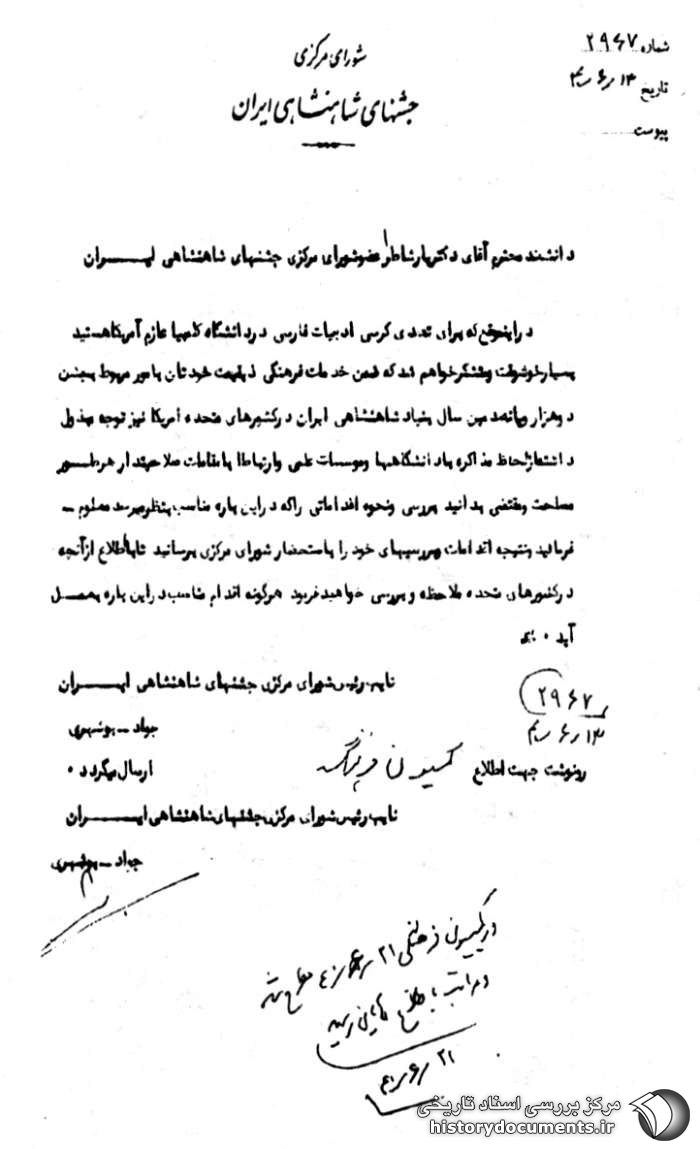 شماره ۲۹۶۷
تاریخ ۱۳ر۶ر۴۰
پیوست
شورای مرکزی
جشنهای شاهنشاهی ایران
دانشمند محترم آقای دکتر یارشاطر عضو شورای مرکزی جشنهای شاهنشاهی ایران
در اینموقع که برای تصدی کرسی ادبیات فارسی در دانشگاه کلمبیا عازم آمریکا هستید
بسیار خوشوقت و متشکر خواهم شد که ضمن خدمات فرهنگی ذیقیمت خودتان بامور مربوط بجشن
دو هزار و پانصدمین سال بنیاد شاهنشاهی ایران در کشورهای متحده آمریکا نیز توجه مبذول
داشته از لحاظ مذاکره با دانشگاهها و موسسات علمی و ارتباط با مقامات صلاحیتدار هر طور
مصلحت و مقتضی بدانید بررسی و نحوه اقداماتی را که در این باره مناسب بنظر میرسد معلوم -
فرمائید و نتیجه اقدامات و بررسیهای خود را باستحضار شورای مرکزی برسانید تا با اطلاع از آنچه
در کشورهای متحده ملاحظه و بررسی خواهید فرمود هرگونه اقدام مناسب در این باره بعمل
آید ۰
نایب رئیس شورای مرکزی جشنهای شاهنشاهی ایران
۲۹۶۷
۱۳ر۶ر۴۰
جواد - بوشهری
رونوشت جهت اطلاع کمیسیون فرهنگ ارسال میگردد ۰
نایب رئیس شورای مرکزی جشنهای شاهنشاهی ایران
جواد - بوشهری
در کمیسیون فرهنگی ۲۱ر۶ر۴۰ مطرح شد
و مراتب باطلاع آقایان رسید
۲۱ر۶ر۴۰
مرکز بررسی اسناد تاریخی
historydocuments.ir